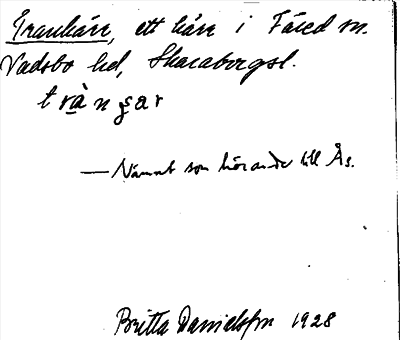 ett kärr i Färed sn.
Vadsbo hd, Skaraborgsl.
tràngar
— Nämnt som hörande till Ås.
Britta Danielsson 1928